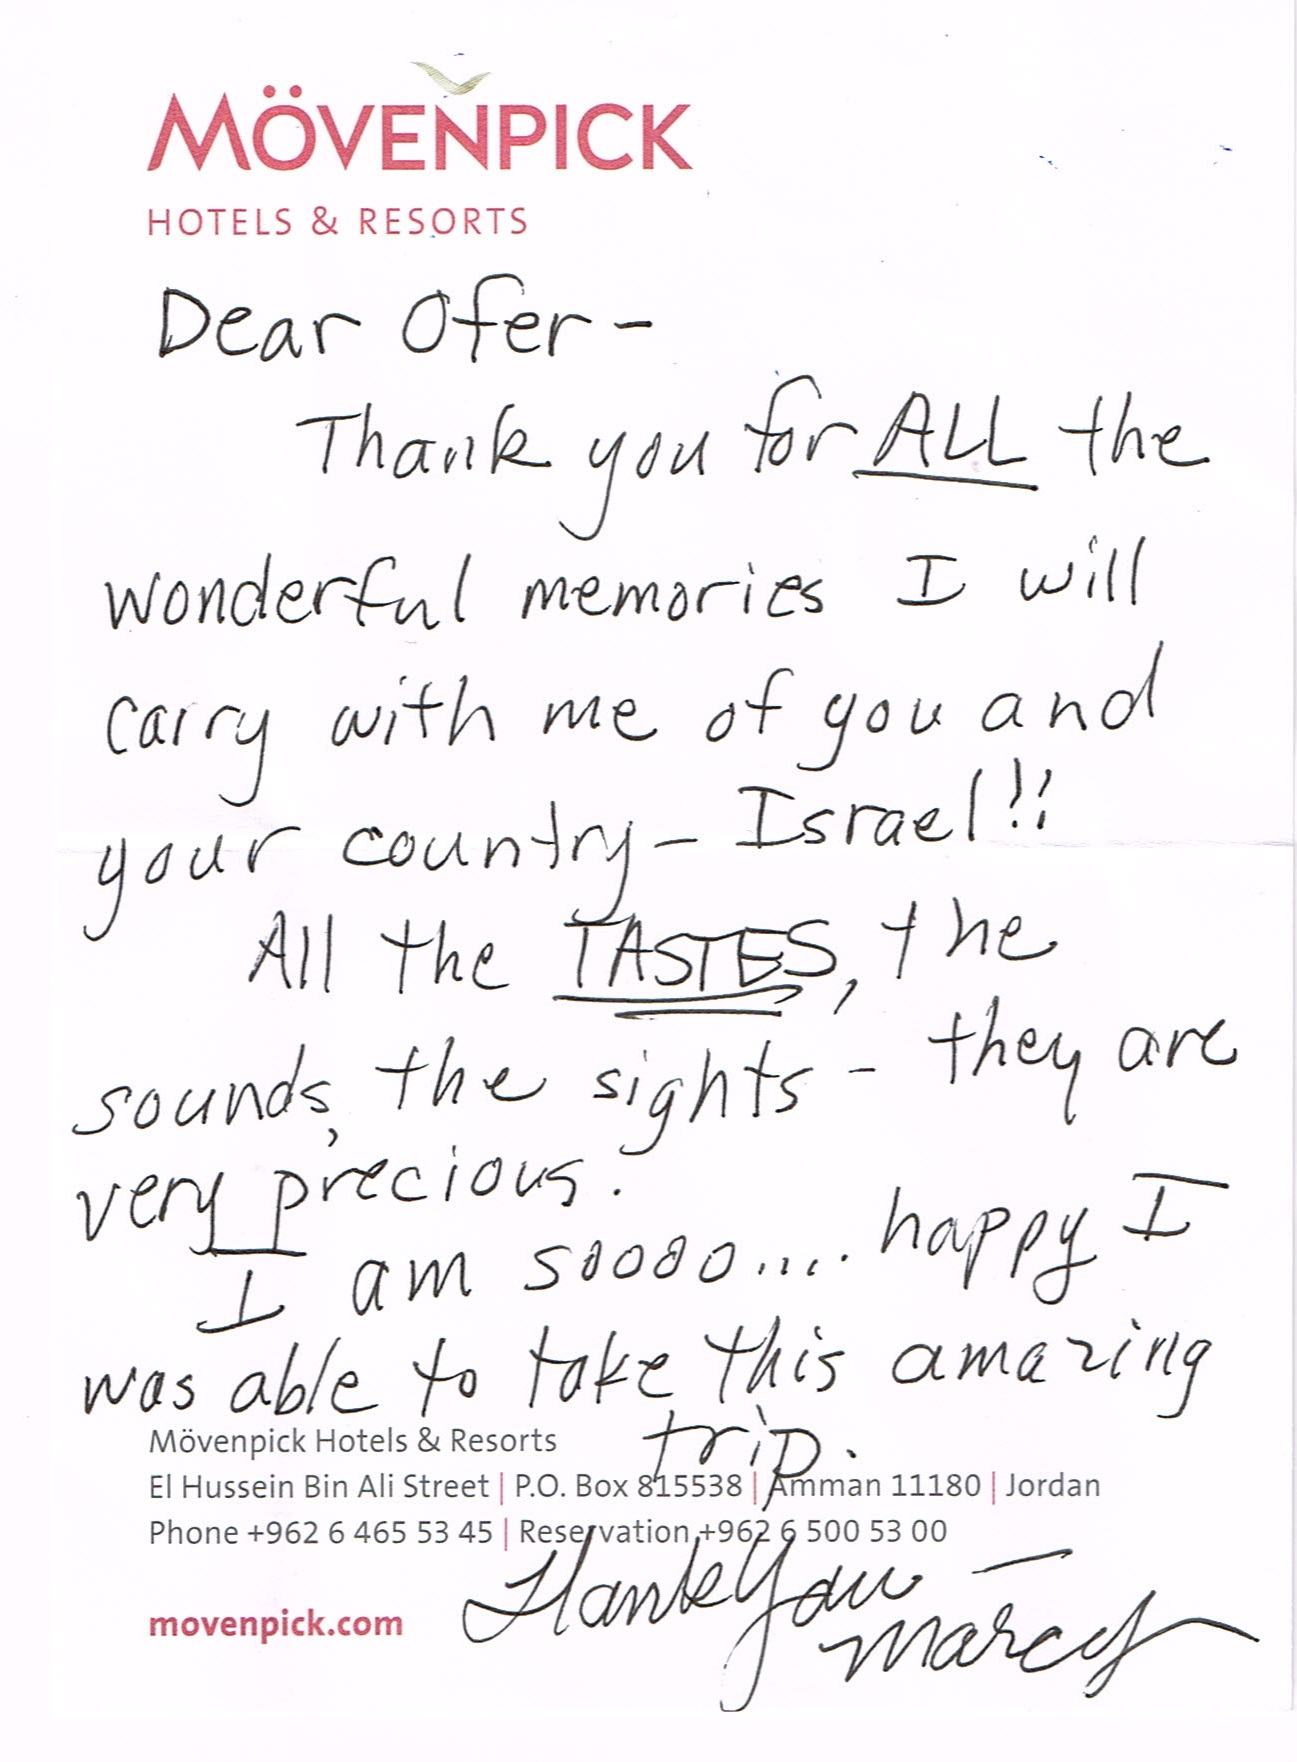 MÖVENPICK
HOTELS & RESORTS
Dear Ofer -
Thank you for ALL the
wonderful memories I will
carry with me of you and
your country - Israel!!
All the TASTES, the
sounds, the sights - they are
very precious.
I am soooo.... happy I
was able to take this amazing
trip.
Mövenpick Hotels & Resorts
El Hussein Bin Ali Street | P.O. Box 815538 | Amman 11180 | Jordan
Phone +962 6 465 53 45 | Reservation +962 6 500 53 00
Thank You -
movenpick.com
Marcy